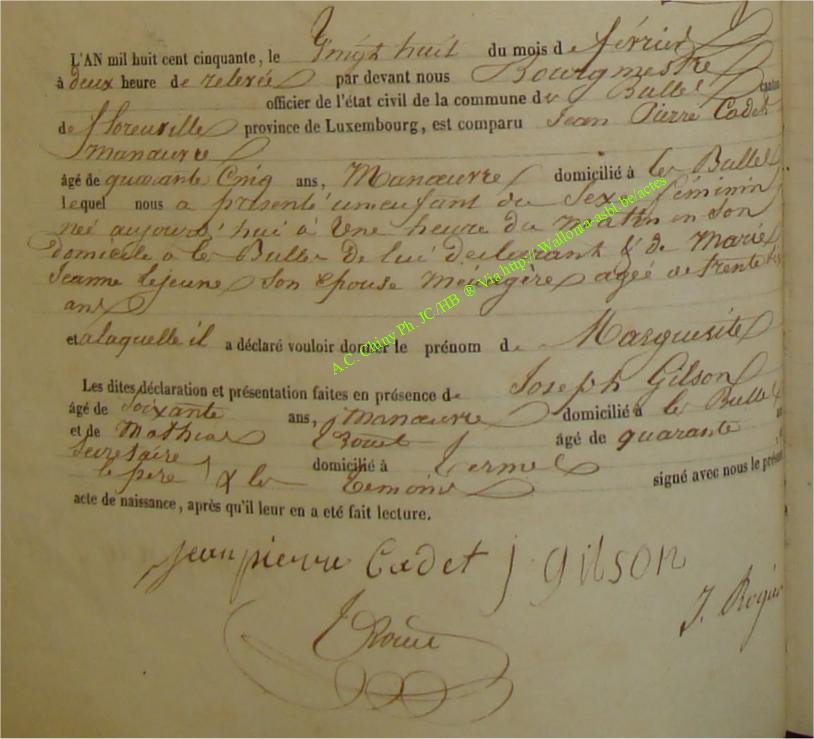 L'AN mil huit cent cinquante, le Vingt huit du mois de février
à deux heure de relevée par devant nous Bourgmestre
officier de l'état civil de la commune de Bulles canton
de florenville province de Luxembourg, est comparu Jean Pierre Cadet
Manœuvre
âgé de quarante Cinq ans, Manœuvre domicilié à les Bulles
lequel nous a présenté un enfant du Sexe féminin
neé aujourd'hui à Une heure du Matin en Son
domicile a les Bulles de lui declarant & de Marie
Jeanne Lejeune Son épouse Ménagère agée de trente
ans
et a laquelle il a déclaré vouloir donner le prénom de Marguerite
Les dites déclaration et présentation faites en présence de Joseph Gilson
âgé de Soixante ans, Manœuvre domicilié à les Bulles
et de Mathias âgé de quarante
Secretaire domicilié à Termes
le père & les temoins signé avec nous le présent
acte de naissance, après qu'il leur en a eté fait lecture.
jean pierre Cadet j. gilson
A.C. Chiny Ph. JC/HB ® Via http://Wallonia-asbl.be/actes